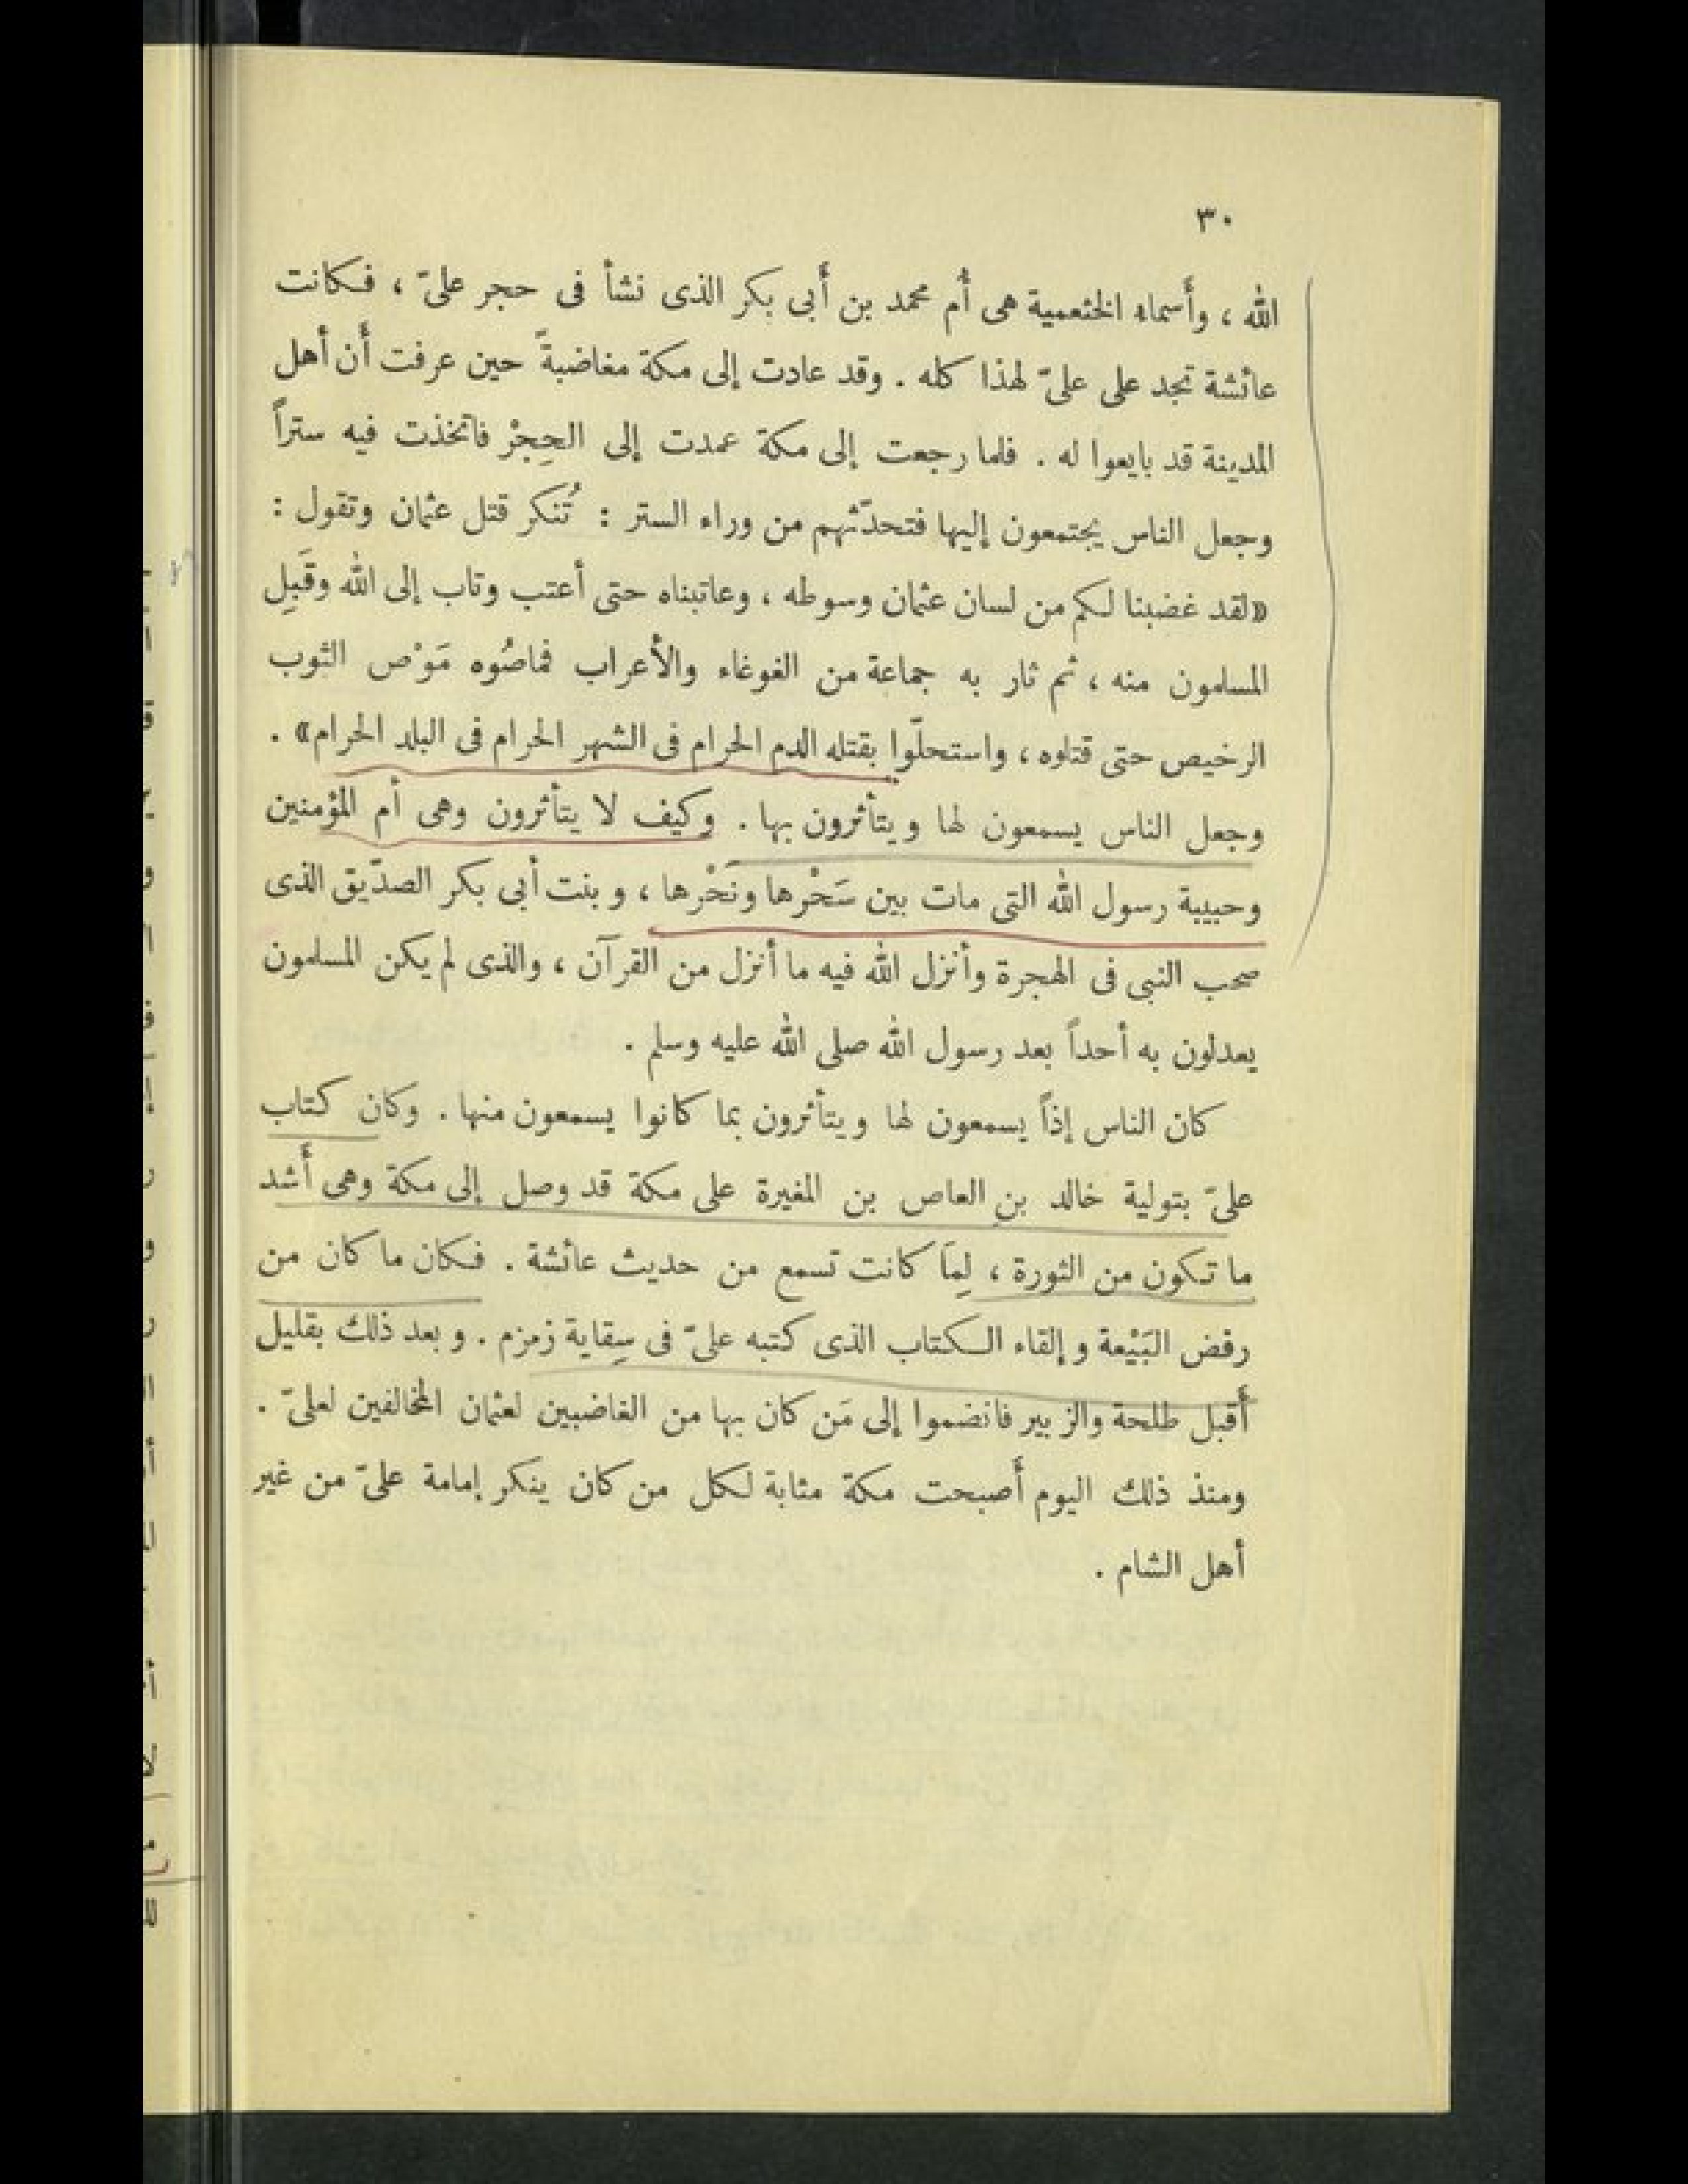 ٣٠
الله ، وأَسماء الخثعمية هى أُم محمد بن أَبى بكر الذى نشأ فى حجر علىّ ، فكانت
عائشة تجد على علىّ لهذا كله . وقد عادت إلى مكة مغاضبةً حين عرفت أَن أهل
المدينة قد بايعوا له . فلما رجعت إلى مكة عمدت إلى الحِجْر فاتخذت فيه ستراً
وجعل الناس يجتمعون إليها فتحدّثهم من وراء الستر : تُنكر قتل عثمان وتقول :
«لقد غضبنا لكم من لسان عثمان وسوطه ، وعاتبناه حتى أعتب وتاب إلى الله وقَبِل
المسلمون منه ، ثم ثار به جماعة من الغوغاء والأعراب فماصُوه مَوْص الثوب
الرخيص حتى قتلوه ، واستحلّوا بقتله الدم الحرام فى الشهر الحرام فى البلد الحرام» .
وجعل الناس يسمعون لها ويتأثرون بها . وكيف لا يتأثرون وهى أم المؤمنين
وحبيبة رسول الله التى مات بين سَحْرها ونَحْرها ، وبنت أبى بكر الصدّيق الذى
صحب النبى فى الهجرة وأنزل الله فيه ما أنزل من القرآن ، والذى لم يكن المسلمون
يعدلون به أحداً بعد رسول الله صلى الله عليه وسلم .
كان الناس إذاً يسمعون لها ويتأثرون بما كانوا يسمعون منها . وكان كتاب
علىّ بتولية خالد بنِ العاص بن المغيرة على مكة قد وصل إلى مكة وهى أَشد
ما تكون من الثورة ، لِمَا كانت تسمع من حديث عائشة . فكان ما كان من
رفض البَيْعة وإلقاء الكتاب الذى كتبه علىّ فى سِقاية زمزم . وبعد ذلك بقليل
أَقبل طلحة والزبير فانضموا إلى مَن كان بها من الغاضبين لعثمان المخالفين لعلىّ .
ومنذ ذلك اليوم أَصبحت مكة مثابة لكل من كان ينكر إمامة علىّ من غير
أهل الشام .